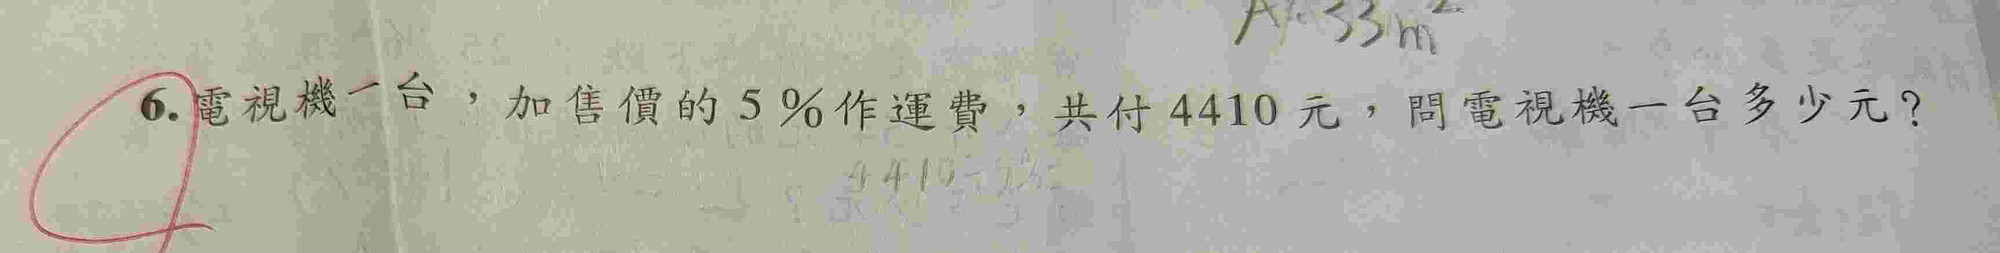 A:33m²
6.電視機一台，加售價的5%作運費，共付4410元，問電視機一台多少元？